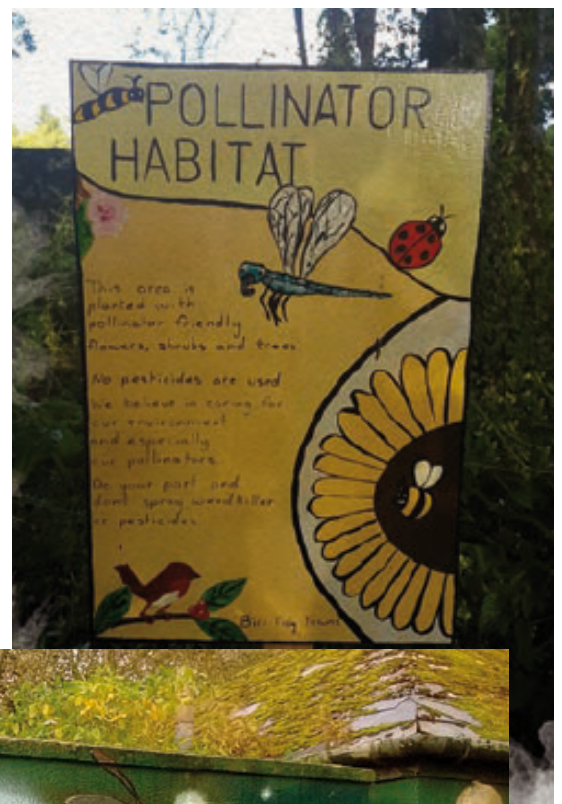 POLLINATOR
HABITAT
This area is
planted with
pollinator friendly
flowers, shrubs and trees
No pesticides are used
We believe in caring for
our environment
and especially
our pollinators.
Do your part and
dont spray weedkiller
or pesticides.
Tidy Towns